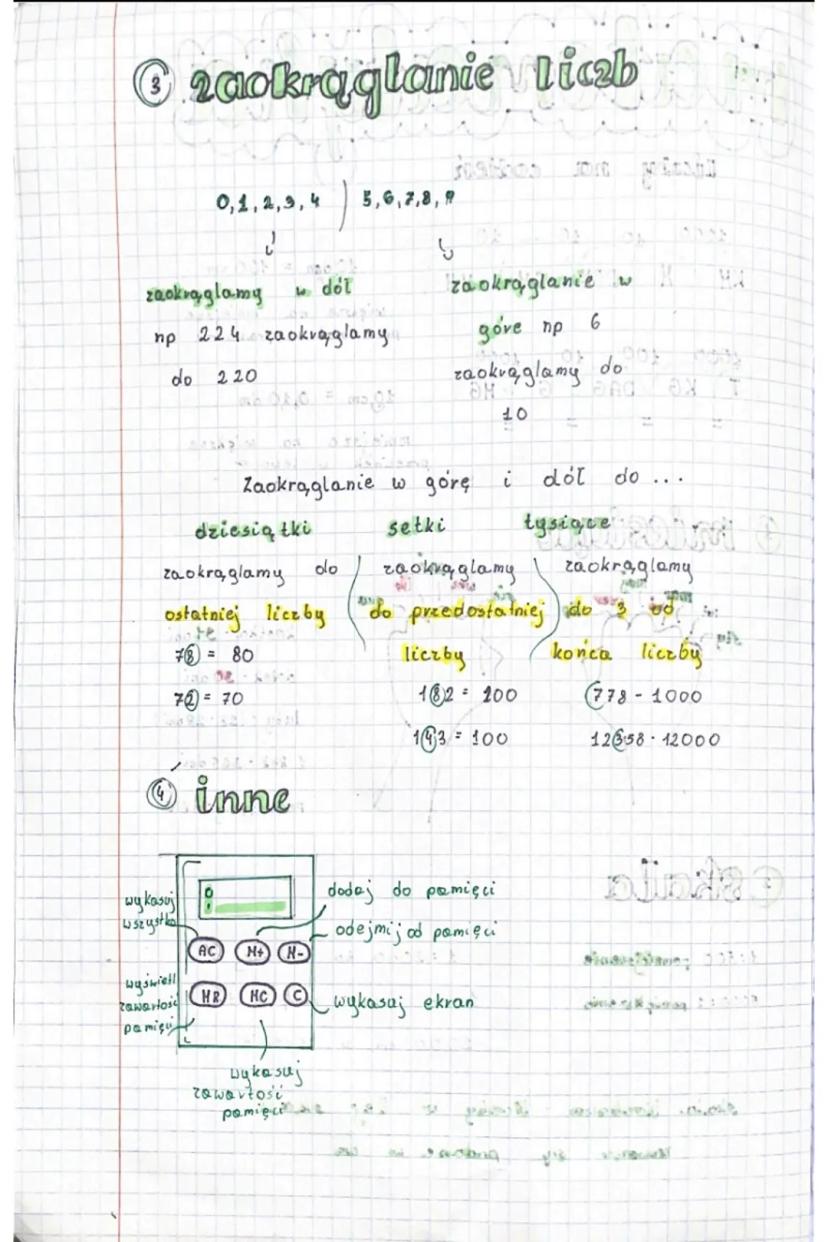 3 zaokrąglanie liczb
0,1,2,3,4 | 5,6,7,8,9
zaokrąglamy w dół
np 224 zaokrąglamy
do 220
zaokrąglanie w
górę np 6
zaokrąglamy do
10
Zaokrąglanie w górę i dół do ...
dziesiątki setki tysiące
zaokrąglamy do
ostatniej liczby
78 = 80
72 = 70
zaokrąglamy
do przedostatniej
liczby
182 = 200
143 = 100
zaokrąglamy
do 3 od
końca liczby
778 - 1000
12358 - 12000
4 inne
0
wykasuj
wszystko
dodaj do pamięci
odejmij od pamięci
AC M+ M-
wyświetl
zawartość
pamięci
MR MC C
wykasuj ekran
wykasuj
zawartość
pamięci